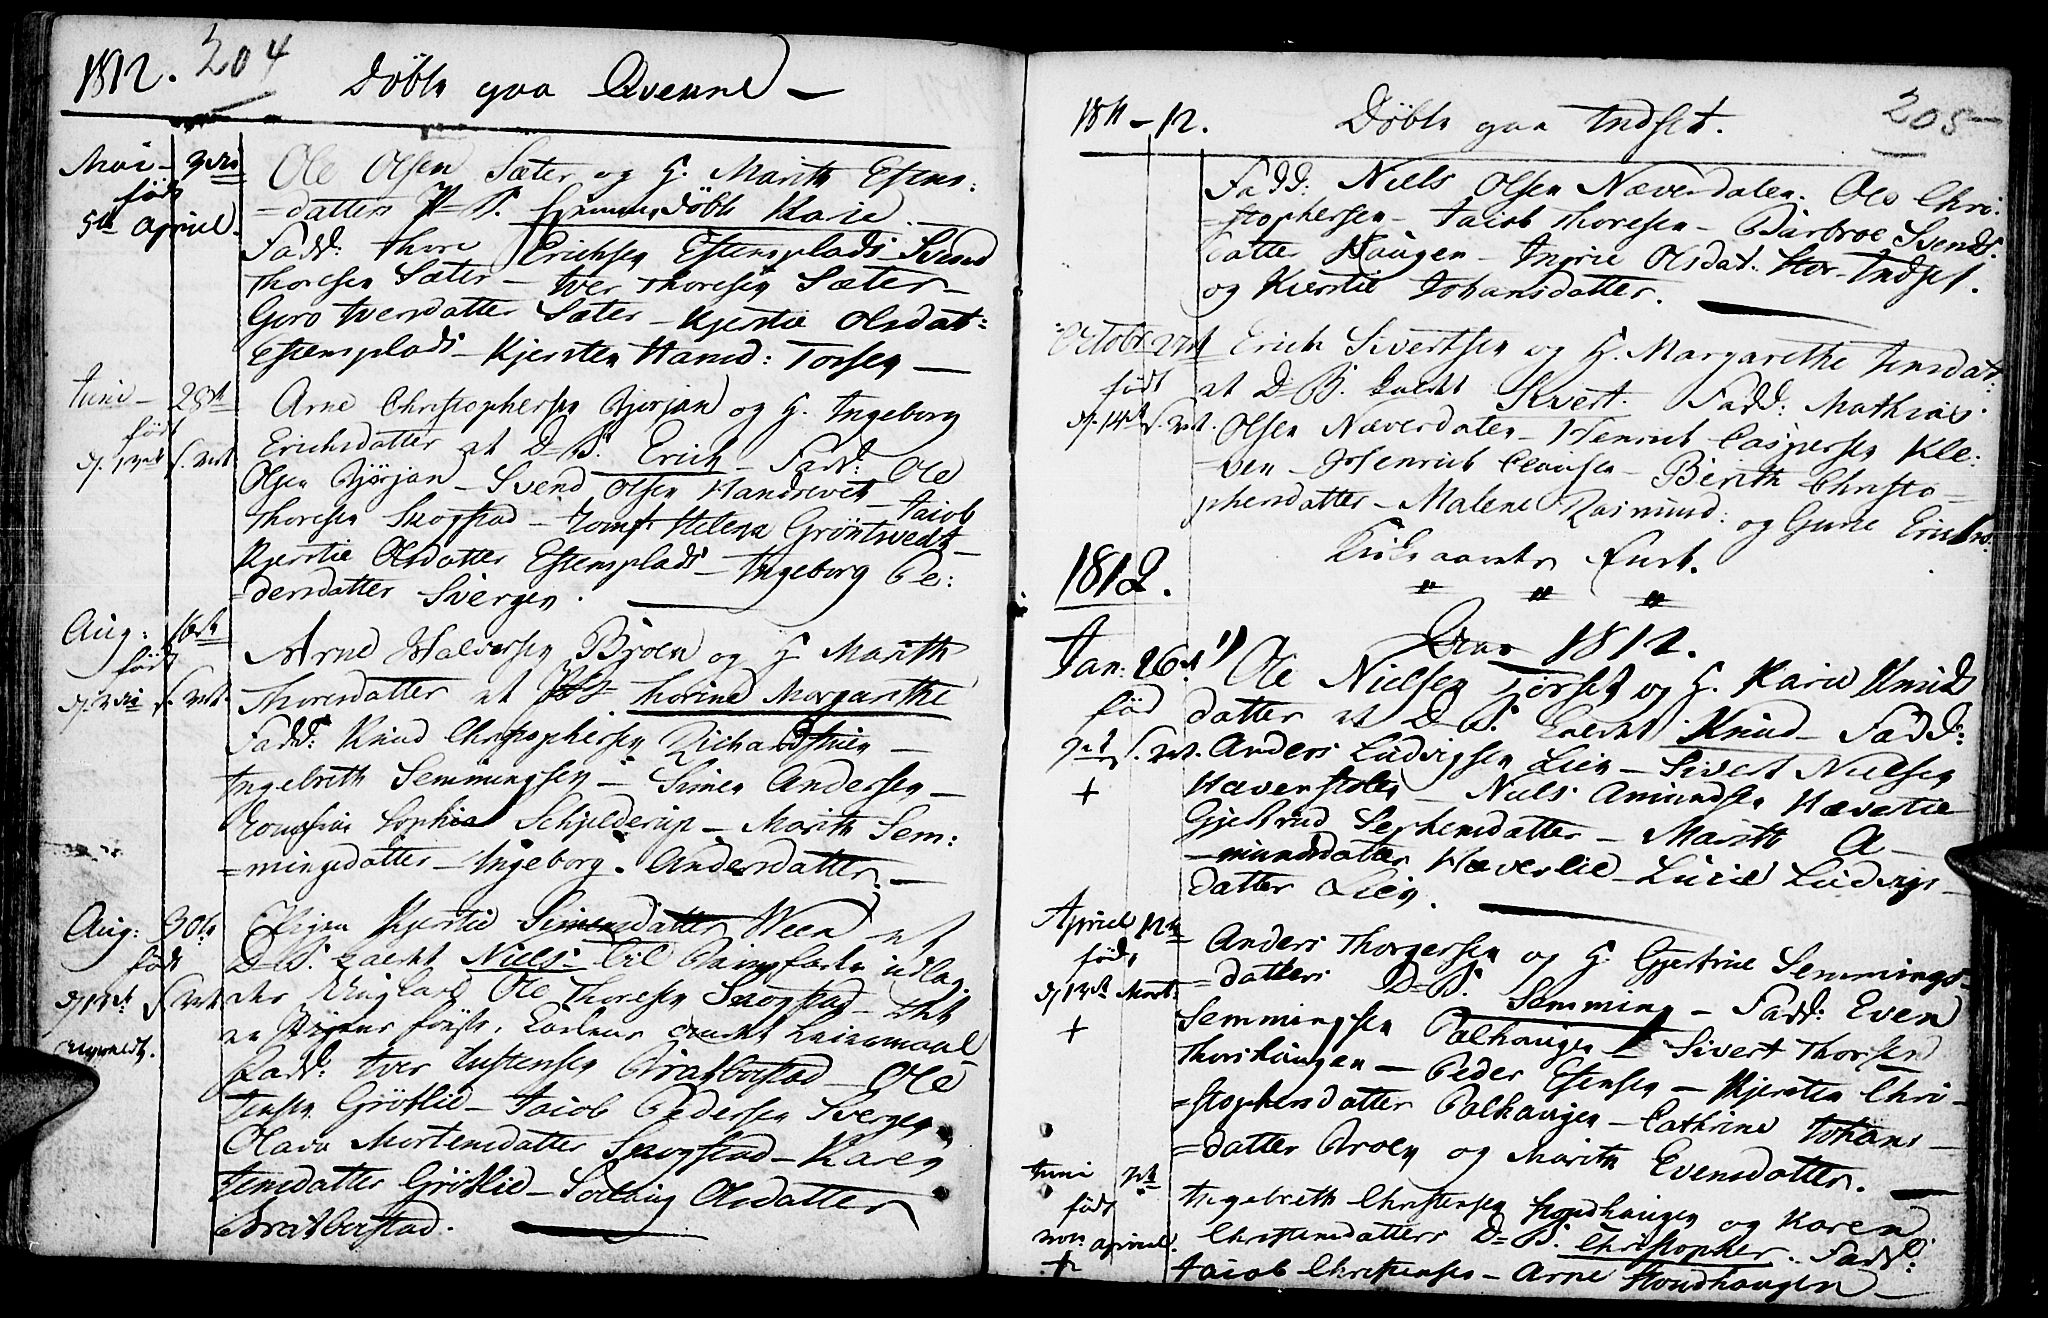 1812. 204
Døbte paa Qvenne –
Mai – 3die
født
5te Apriel.
Ole Olsen Sæter og H. Marith Estens:
=datters Pb. hjemme døbt Karie. –
Fadd: Thore Erichsen Estensplads – Svend
Thoresen Sæter – Iver Thoresen Sæter –
Guro Iversdatter Sæter – Kjerstie Olsdat=
Estensplads – Kjersten Hansd: Torsen –
Juni – 28de
født
d. s. mt.
Arne Christophersen Bjørjan og H. Ingeborg
Erichsdatter et D=B. Erich – Fadd: Ole
Olsen Bjørjan – Svend Olsen – Jacob
Thoresen Skogstad – Jomf: Helena Grøntvedt –
Kjerstie Olsdatter Estensplads – Ingeborg Pe:
=dersdatter Svergen.
Aug: 16de
født
d. 3die s. mt.
Arne Halvorsen Bjøen og H. Marith
Thoresdatter et Thorine Margarethe
Fadd: Knud Christophersen –
Ingebreth Semmingsen – Simen Andersen –
Jomfrue Sophia Schjelderup – Marith Sem:
=mingsdatter – Ingeborg Andersdatter. –
Aug: 30te
født
s. mt.
Pigen Kjerstie Simensdatter Ween et
D=B. kaldt Niels – til Barnefader udlag
des Ungkarl Ole Thoresen Skogstad – Det
er Pigens første, Leiermaal
Fadd: Iver Bratberstad – Ole
Jensen Grøtlie – Jacob Pedersen Svergen
Olava Mortensdatter Skogstad – Karen
Jensdatter Grøtlie – Olsdatter
Bratberstad.
1811 – 12. Døbte paa Indset. 205
Fadd: Niels Olsen Næverdalen. Ole Chri:
=stophersen – Jacob Thoresen – Barbroe Svends:
datter Haugen – Ingrie Olsdat: Stor-Indset.
og Kierstie Johansdatter.
October 27de
født
d. 14de s. mt.
Erich Sivertsen og H. Margarethe Jensdat:
et D=B. kaldt Sivert. Fadd: Mathias
Olsen Næverdalen – Henrich Caspersen Kle:
=ven – Henrich Clausen – Berith Christo –
phersdatter – Malene Rasmusd: og Gurie Erichs:
Kirkeaarets
1812.
Jan: 26de
fød
s. mt.
+
Aar 1812.
1) Ole Nielsen Torset og H. Karie Knuds
datter et D=B. kaldt Knud – Fadd:
Anders Ludvigsen Lien – Sivert Nielsen
Hæverstølen – Niels Amundsen Hæverlie
Gjertrud Stephensdatter – Marith A –
–mundsdatter Hæverlie – Lucie Ludvigs –
datter Lien.
Apriel 12te
fød,
d. 13de Mart:
+
Anders Thorgersen og H. Gjertrue Semmings-
=datters D=B. Semming – Fadd: Even
Semmingsen Palhaugen – Sivert Thorsen
Thorshaugen – Peder Estensen – Kjersten Chri –
=stophersdatter Palhaugen – Cathrine Johans –
=datter Broen og Marith Evensdatter. –
Juni 7de
født
Apriel.
+
Ingebreth Christensen Hondhaugen og Karen
Christensdatters D=B. Christopher. Fadd:
Jacob Christensen – Arne Hondhaugen –